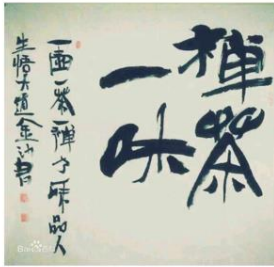 禅茶
一味
一一茶一禅味品人
生悟大道金沙书